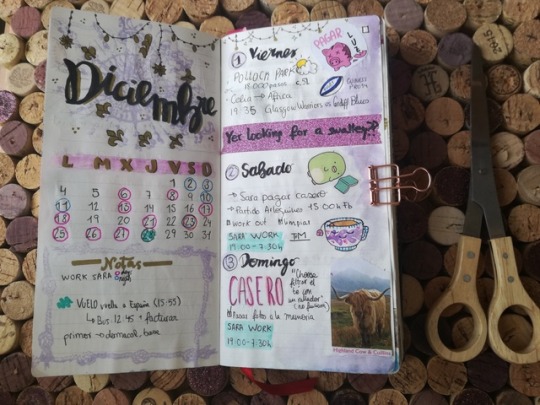 Diciembre
L M X J V S D
1 2 3
4 5 6 7 8 9 10
11 12 13 14 15 16 17
18 19 20 21 22 23 24
25 26 27 28 29 30 31
Notas
WORK SARA
VUELO vuelta a España (15:55)
↳ Bus 12:45 + facturar
primer →
1 Viernes
PAGAR LUZ
POLLOCK PARK
18000 pasos
Celia → Africa
19:35 Glasgow Warriors vs Cardiff Blues
Yer looking for a swalley?
2 Sabado
→ Sara pagar casero
→ Partido Arlequines 15:00h
WORK OUT
SARA WORK
19:00-7:30h
3 Domingo
CASERO
"Cheese
→ Pasar foto a la memoria
SARA WORK
19:00-7:30h
Highland Cow & Collins